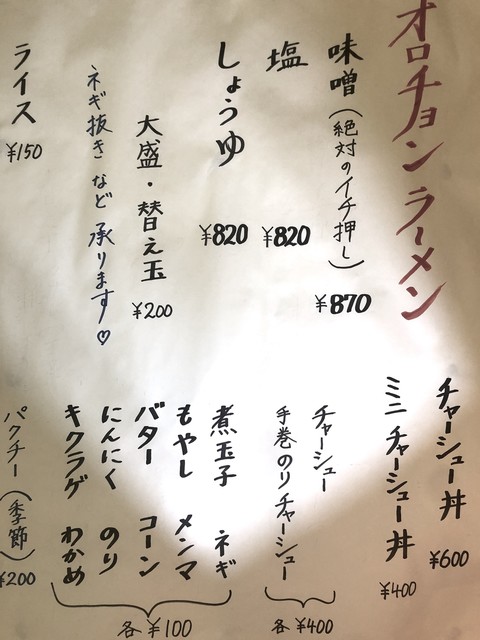 オロチョンラーメン
味噌(絶対のイチ押し) ¥870
塩 ¥820
しょうゆ ¥820
大盛・替え玉 ¥200
ネギ抜きなど承ります♡
ライス ¥150
チャーシュー丼 ¥600
ミニチャーシュー丼 ¥400
チャーシュー
手巻のりチャーシュー
各¥400
煮玉子 ネギ
もやし メンマ
バター コーン
にんにく のり
キクラゲ わかめ
各¥100
パクチー(季節) ¥200